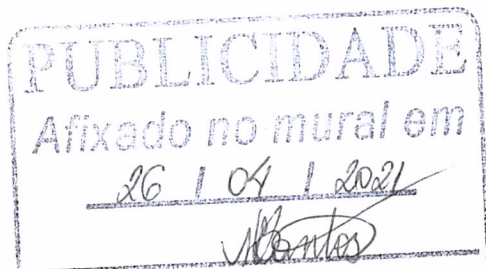 PUBLICIDADE
Afixado no mural em
26 / 04 / 2021